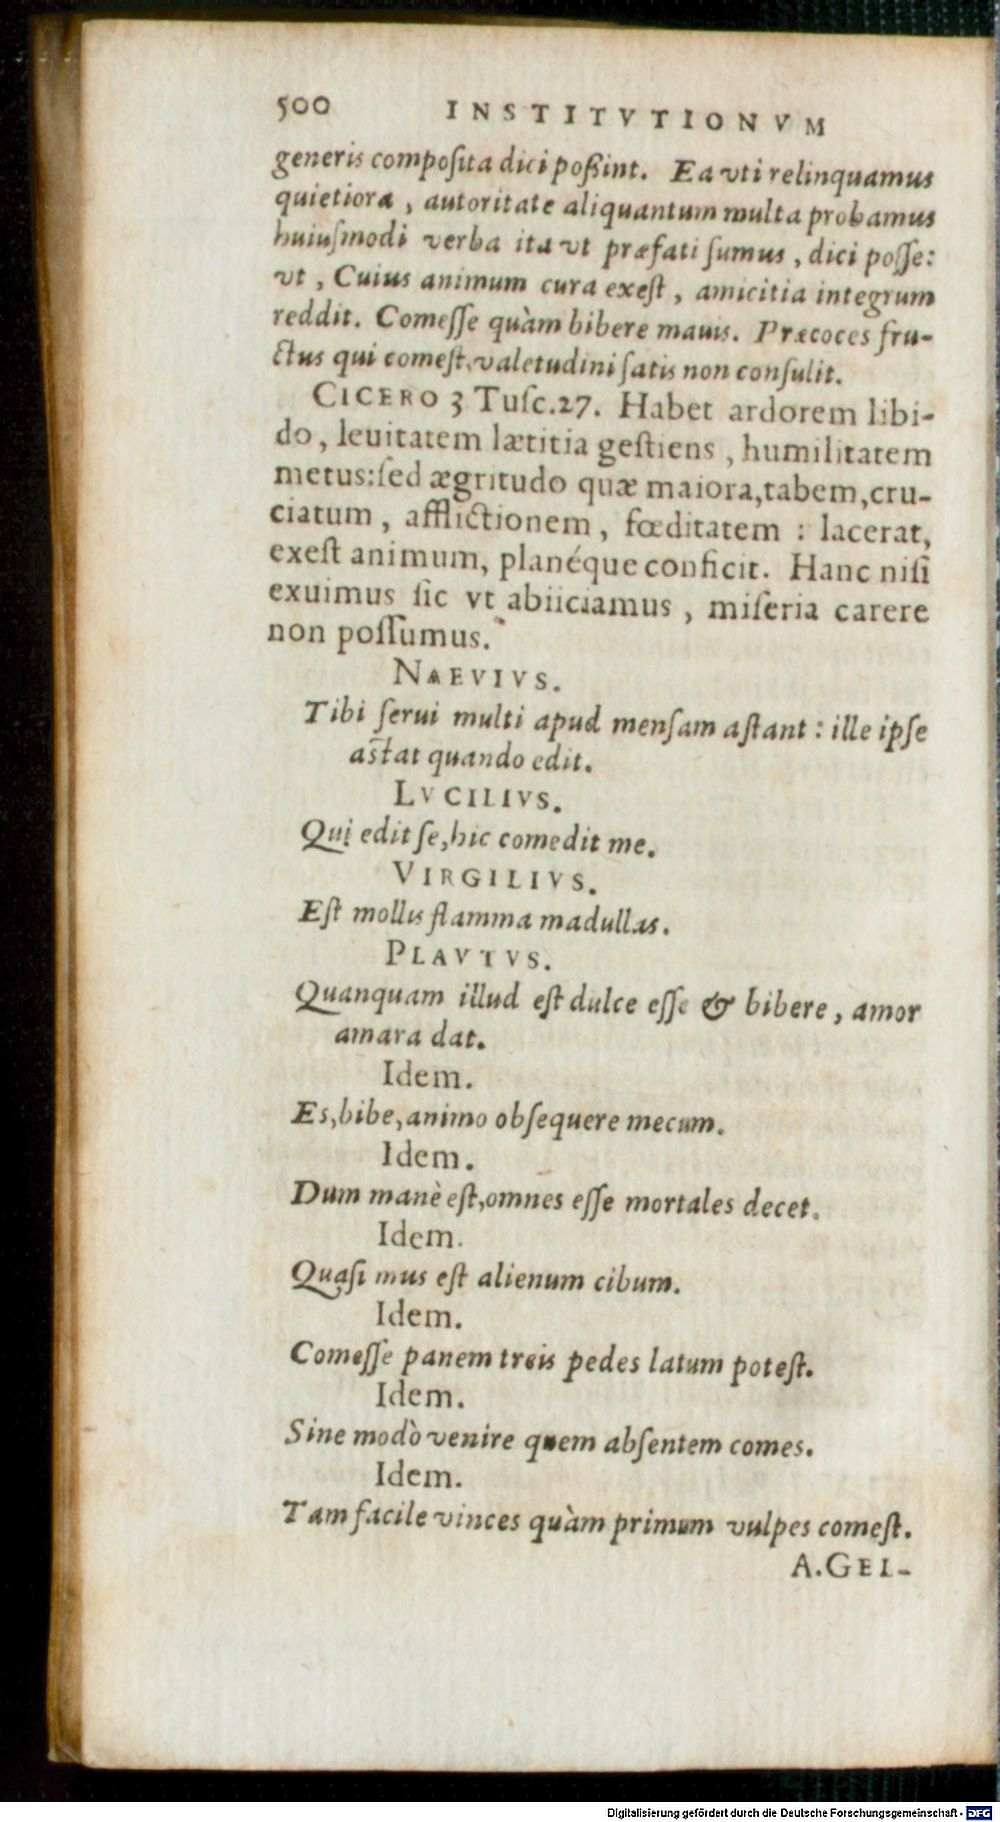 500 INSTITVTIONVM
generis compoſita dici poßint. Ea vti relinquamus
quietiora, autoritate aliquantum multa probamus
huiuſmodi verba ita vt præfati ſumus, dici poſſe:
vt, Cuius animum cura exeſt, amicitia integrum
reddit. Comeſſe quàm bibere mauis. Præcoces fru-
ctus qui comeſt, valetudini ſatis non conſulit.
CICERO 3 Tuſc.27. Habet ardorem libi-
do, leuitatem lætitia geſtiens, humilitatem
metus: ſed ægritudo quæ maiora, tabem, cru-
ciatum, afflictionem, fœditatem: lacerat,
exeſt animum, planéque conficit. Hanc niſi
exuimus ſic vt abiiciamus, miſeria carere
non poſſumus.
NAEVIVS.
Tibi ſerui multi apud menſam aſtant: ille ipſe
aſtat quando edit.
LVCILIVS.
Qui edit ſe, hic comedit me.
VIRGILIVS.
Eſt mollis flamma madullas.
PLAVTVS.
Quanquam illud eſt dulce eſſe & bibere, amor
amara dat.
Idem.
Es, bibe, animo obſequere mecum.
Idem.
Dum manè eſt, omnes eſſe mortales decet.
Idem.
Quaſi mus eſt alienum cibum.
Idem.
Comeſſe panem treis pedes latum poteſt.
Idem.
Sine modò venire quem abſentem comes.
Idem.
Tam facile vinces quàm primum vulpes comeſt.
A. GEL-
Digitalisierung gefördert durch die Deutsche Forschungsgemeinschaft - DFG